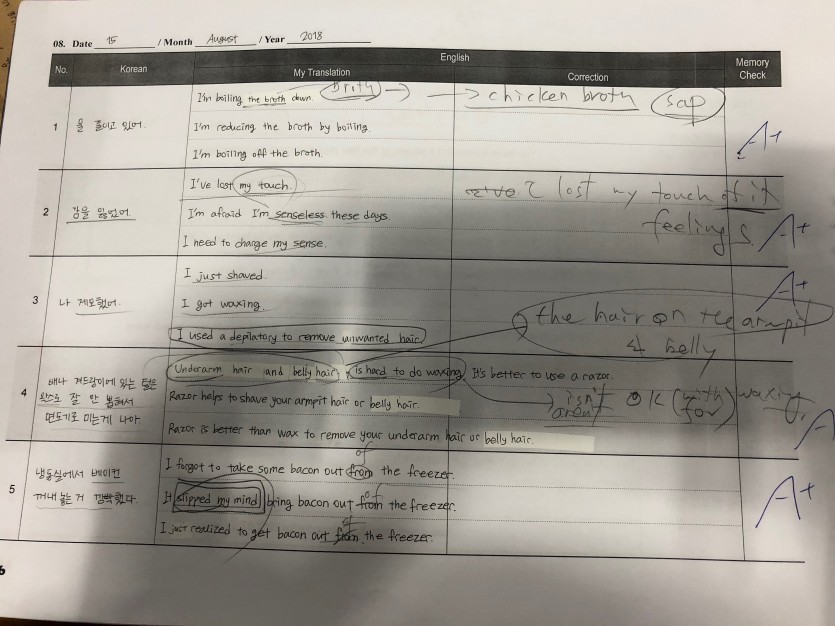 08. Date 15 / Month August / Year 2018
No. Korean English Memory Check
My Translation Correction
1 을 졸이고 있어.
I'm boiling the broth down. broth → → chicken broth sap
I'm reducing the broth by boiling.
I'm boiling off the broth.
A+
2 감을 잃었어.
I've lost my touch. I've I lost my touch of it
I'm afraid I'm senseless these days. feelings
I need to charge my sense.
A+
3 나 제모했어.
I just shaved.
I got waxing.
I used a depilatory to remove unwanted hair.
the hair on the armpit
& belly
A+
4 배나 겨드랑이에 있는 털은
왁스로 잘 안 뽑혀서
면도기로 미는게 나아
Underarm hair and belly hair is hard to do waxing. It's better to use a razor.
Razor helps to shave your armpit hair or belly hair. → isn't aren't OK (with for) waxing.
Razor is better than wax to remove your underarm hair or belly hair.
A
5 냉동실에서 베이컨
꺼내 놓는 거 깜빡했다.
of
I forgot to take some bacon out from the freezer.
of
It slipped my mind bring bacon out from the freezer.
of
I just realized to get bacon out from the freezer.
A+
6